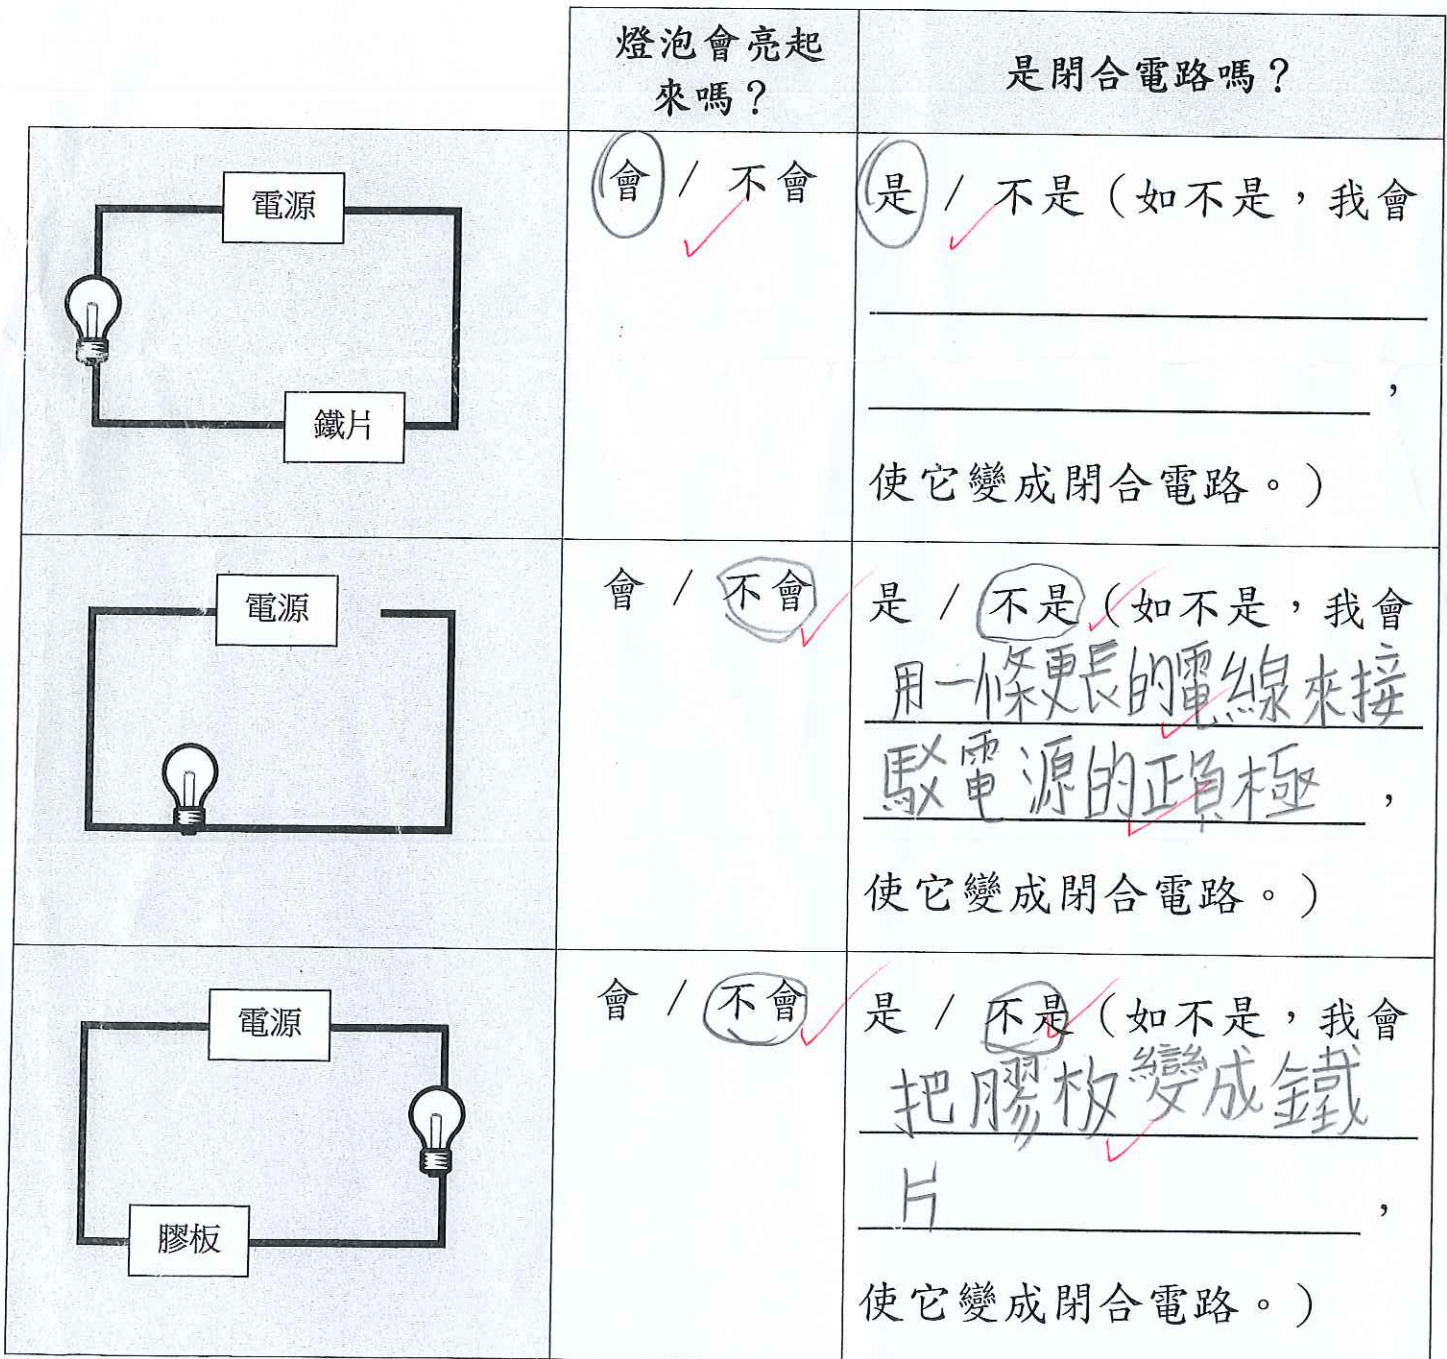 燈泡會亮起
來嗎？
是閉合電路嗎？
電源
鐵片
會 / 不會
是 / 不是（如不是，我會
，
使它變成閉合電路。）
電源
會 / 不會
是 / 不是（如不是，我會
用一條更長的電線來接
駁電源的正負極，
使它變成閉合電路。）
電源
膠板
會 / 不會
是 / 不是（如不是，我會
把膠板變成鐵
片，
使它變成閉合電路。）